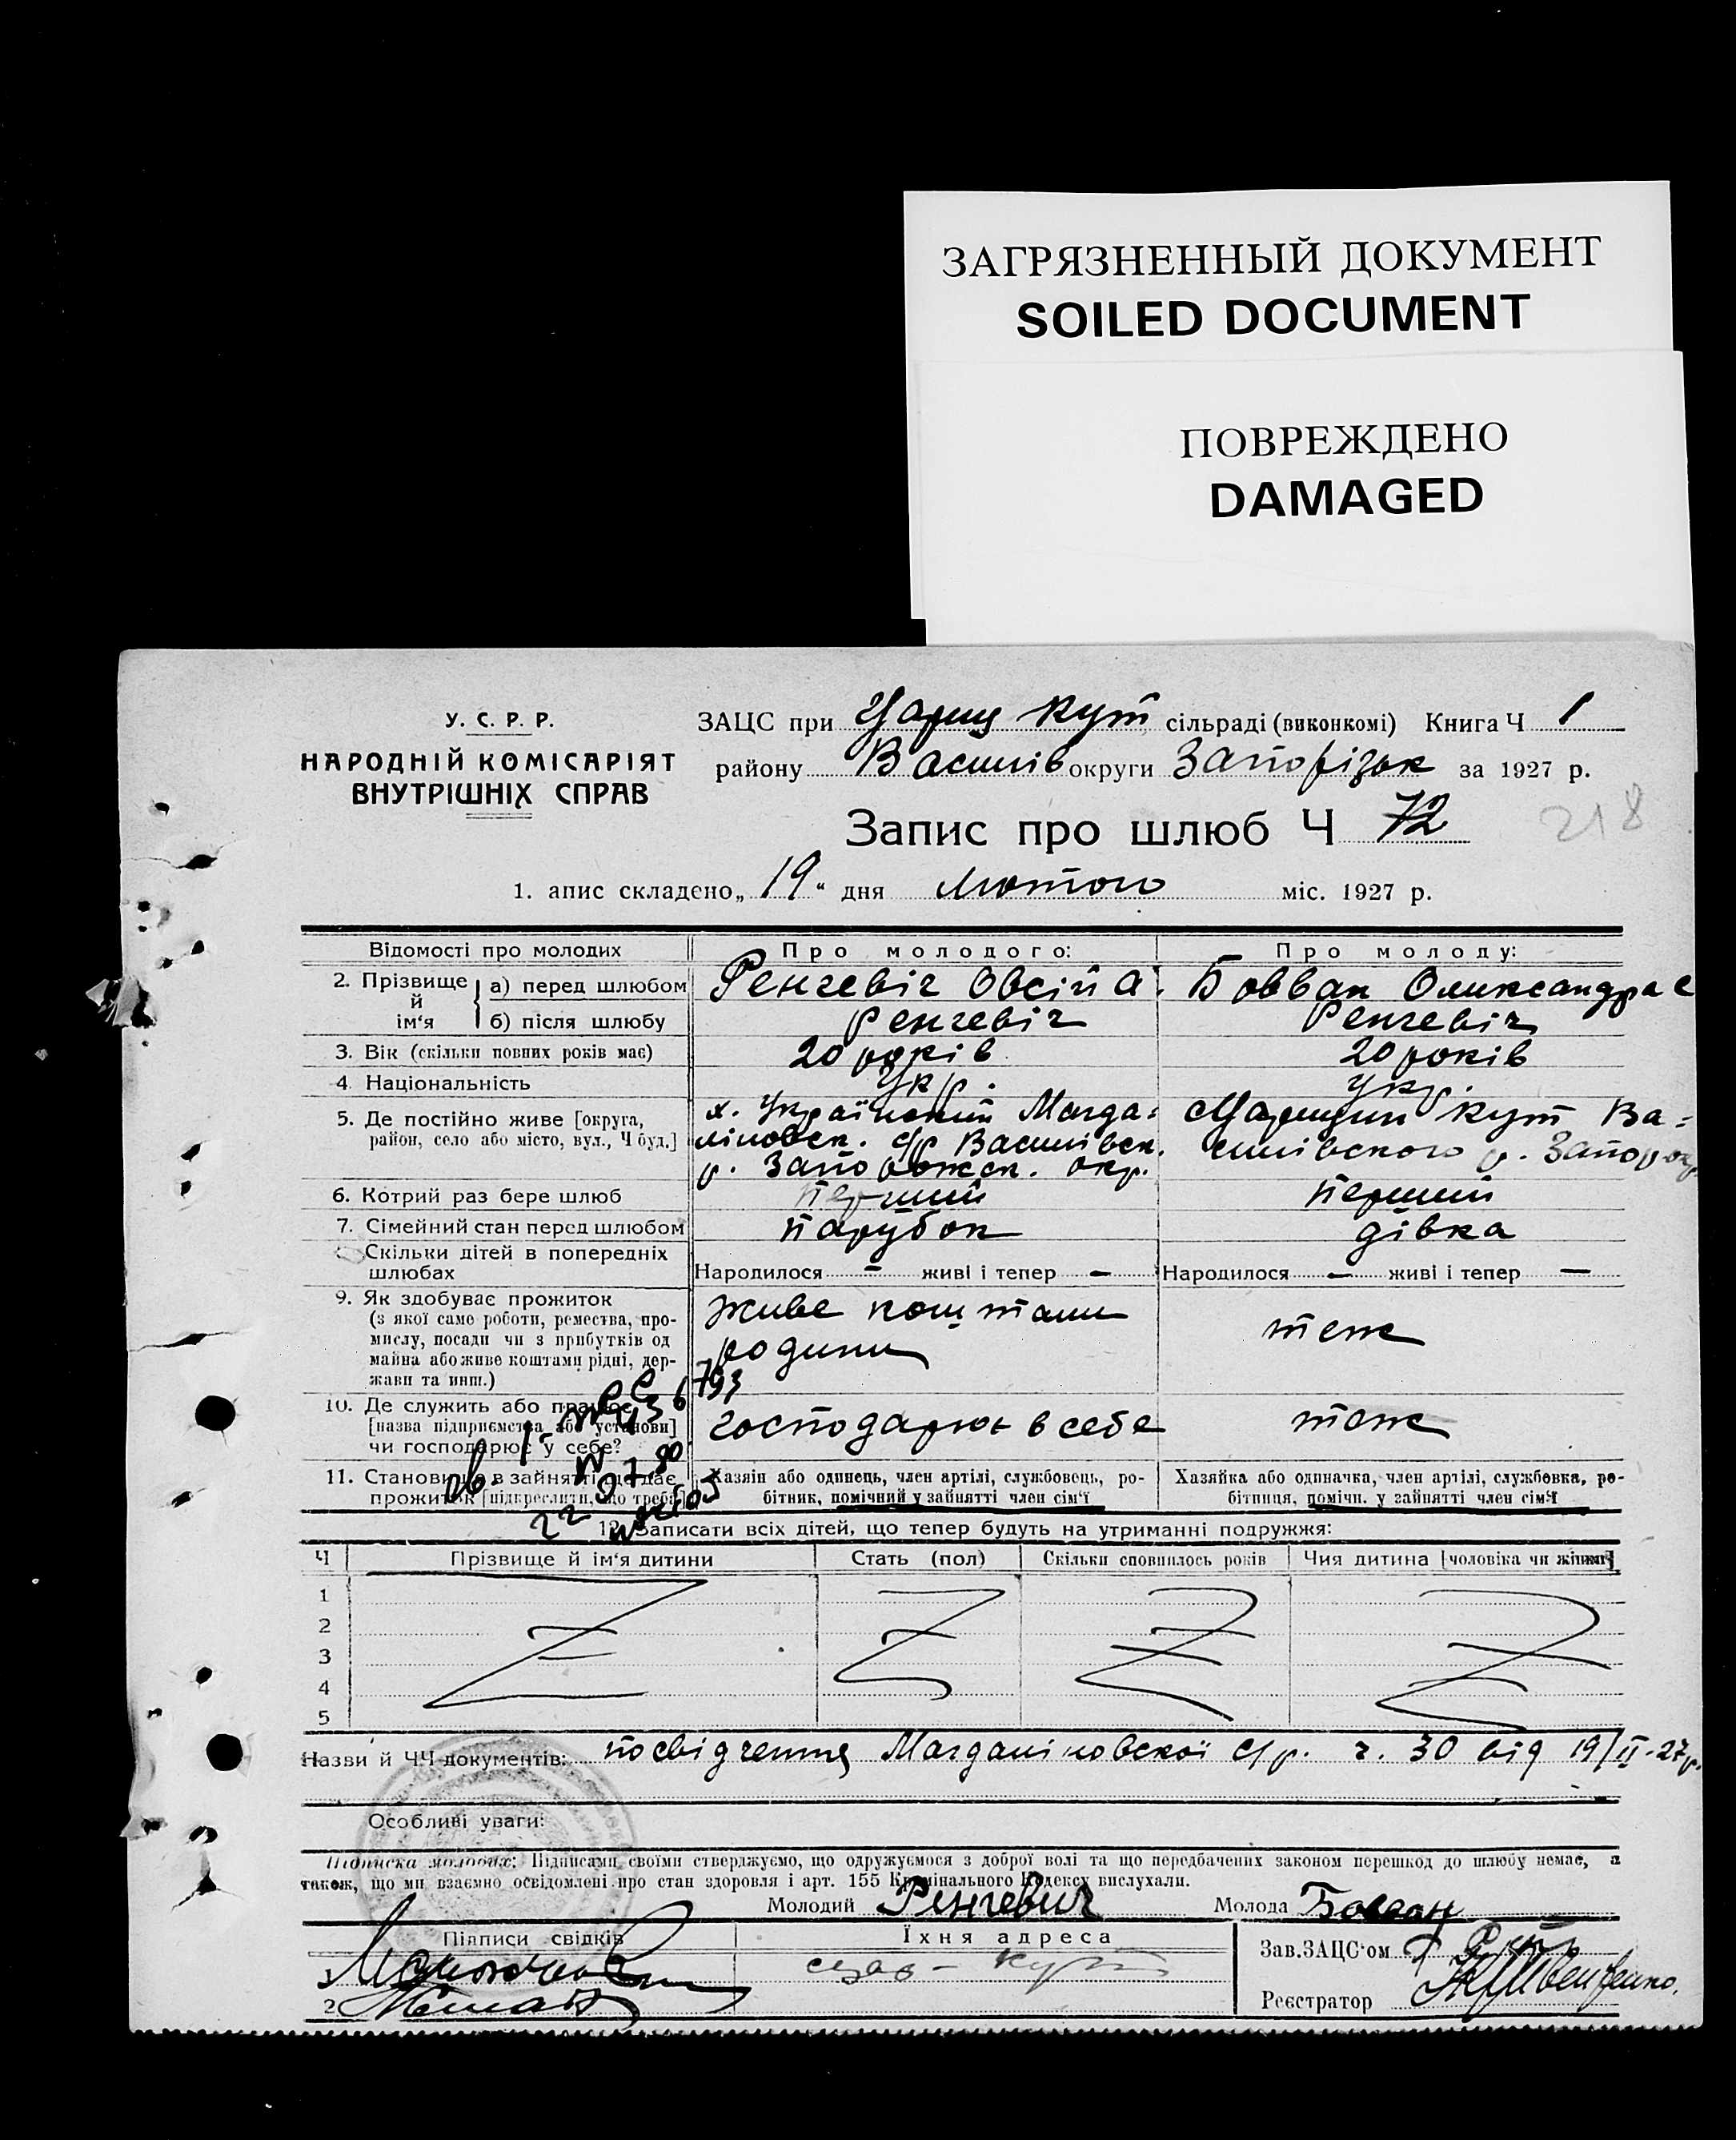 ЗАГРЯЗНЕННЫЙ ДОКУМЕНТ
SOILED DOCUMENT
ПОВРЕЖДЕНО
DAMAGED
У. С. Р. Р.
НАРОДНІЙ КОМІСАРІЯТ
ВНУТРІШНІХ СПРАВ
ЗАЦС при Цариц Кут сільраді (виконкомі) Книга Ч 1
району Василів округи Запорізьк за 1927 р.
Запис про шлюб Ч 72
218
1. апис складено „19“ дня лютого міс. 1927 р.
Відомості про молодих Про молодого: Про молоду:
2. Прізвище й ім‘я а) перед шлюбом Ренгевіч Овсій А. Бовван Олександра Є
б) після шлюбу Ренгевіч Ренгевіч
3. Вік (скільки повних років має) 20 років 20 років
4. Національність Укр. Укр.
5. Де постійно живе [округа, район, село або місто, вул., Ч буд.]
х. Український Магда=
ліновск. с/р Василівск.
р. Запорожск. окр.
Царицин Кут Ва=
силівского р. Запор окр
6. Котрий раз бере шлюб перший перший
7. Сімейний стан перед шлюбом парубок дівка
Скільки дітей в попередніх шлюбах Народилося – живі і тепер – Народилося – живі і тепер —
9. Як здобуває прожиток
(з якої саме роботи, ремества, про-
мислу, посади чи з прибутків од
майна або живе коштами рідні, дер-
жави та инш.)
живе коштами
родини
теж
793
10. Де служить або працює
[назва підприємства або установи]
чи господарює у себе?
господарює в себе теж
11. Становище в зайнятті що дає
прожиток [підкреслити, що треба]
Хазяїн або одинець, член артілі, службовець, ро-
бітник, помічний у зайнятті член сім‘ї
Хазяйка або одиначка, член артілі, службовка, ро-
бітниця, помічн. у зайнятті член сім‘ї
12. Записати всіх дітей, що тепер будуть на утриманні подружжя:
Ч Прізвище й ім‘я дитини Стать (пол) Скільки сповнилось років Чия дитина [чоловіка чи жінки]
1
2
3
4
5
Назви й ЧЧ документів: посвідчення Магдаліновскої с/р. ч. 30 від 19/II-27р.
Особливі уваги:
Підписка молодих: Підписами своїми стверджуємо, що одружуємося з доброї волі та що передбачених законом перешкод до шлюбу немає, а
також, що ми взаємно освідомлені про стан здоровля і арт. 155 Кримінального Кодексу вислухали.
Молодий Ренгевич Молода Бовван
Підписи свідків Їхня адреса
1
Цар-Кут
2
Зав.ЗАЦС‘ом
Реєстратор